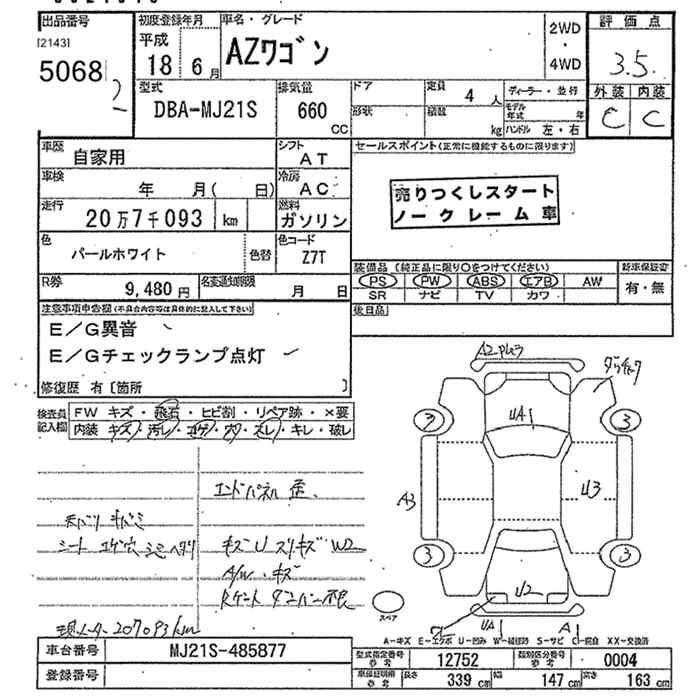 出品番号
[2143]
5068
2
初度登録年月
平成
18年 6月
車名・グレード
AZワゴン
2WD
・
4WD
評価点
3.5
外装 内装
C C
型式
DBA-MJ21S
排気量
660
CC
ドア
形状
定員
4 人
積数
kg
ディーラー・並行
モデル年式 年
ハンドル 左・右
車歴
自家用
シフト
AT
車検
年 月( 日)
冷房
AC
走行
20万7千093 km
燃料
ガソリン
色
パールホワイト
色替
色コード
Z7T
R券
9,480円
名変通知期限
月 日
セールスポイント(正常に機能するものに限ります)
売りつくしスタート
ノークレーム車
装備品(純正品に限り○をつけてください)
PS PW ABS エアB AW
SR ナビ TV カワ
新車保証書
有・無
後日品
注意事項申告欄(不具合内容等は具体的に記入して下さい)
E/G異音
E/Gチェックランプ点灯
修復歴 有〔箇所 〕
検査員
記入欄
FW キズ・飛石・ヒビ割・リペア跡・×要
内装 キズ・汚レ・コゲ・穴・スレ・キレ・破レ
エンドパネル 歪
天バリ キバミ
シート コゲ穴 シミ ヘタリ
キズ U スリキズ W2
A/W・キズ
Rゲート ダンパー不良
現メーター207093km
A2
UA1
3
3
A3
U3
3
3
U2
UA1
A1
スペア
A-キズ E-エクボ U-凹み W-補修跡 S-サビ C-腐食 XX-交換済
車台番号
MJ21S-485877
登録番号
型式指定番号
参考
12752
類別区分番号
参考
0004
車検証明用
参考
長さ
339 cm
幅
147 cm
高さ
163 cm